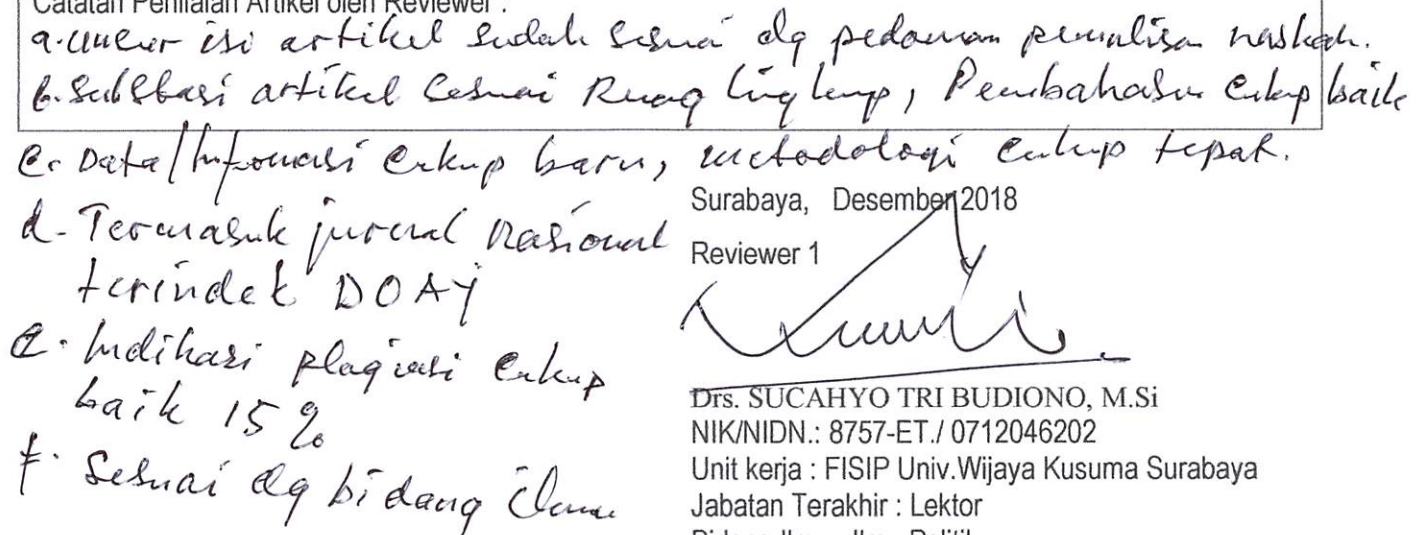 Catatan Penilaian Artikel oleh Reviewer :
a. unsur isi artikel sudah sesuai dg pedoman penulisan naskah.
b. Substasi artikel sesuai Ruag lingkup, Pembahasan cukup baik
c. Data/Informasi cukup baru, metodologi cukup tepat.
d. Termasuk jurnal nasional
terindek DOAJ
e. Indikasi plagiasi cukup
baik 15 %
f. Sesuai dg bidang ilmu
Surabaya, Desember 2018
Reviewer 1
Drs. SUCAHYO TRI BUDIONO, M.Si
NIK/NIDN.: 8757-ET./ 0712046202
Unit kerja : FISIP Univ.Wijaya Kusuma Surabaya
Jabatan Terakhir : Lektor
Bidang Ilmu : Ilmu Politik